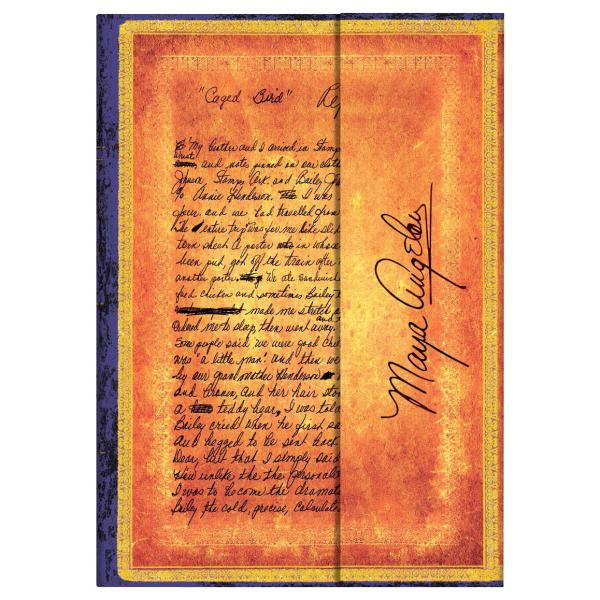 "Caged Bird" Re
My brother and I arrived in Stamp
and notes pinned on our cloth
Johnson, Stamps Ark. and Bailey J
To Annie Henderson. I was
and we had travelled from
The entire trip was for me like
a porter in whose
been put, got off the train after
another We ate sandwich
fried chicken and sometimes Bailey
made me stretch
and
me to sleep, then went away.
Some people said we were good chi
was "a little man" and then we
by our grandmother Henderson
and Brown, and her hair
a teddy bear, I was told
Bailey cried when he first sa
and begged to be sent back
Dear, but that I simply said
How unlike the the personal
I was to become the dramat
Bailey the cold, precise, calculat
Maya Angelou